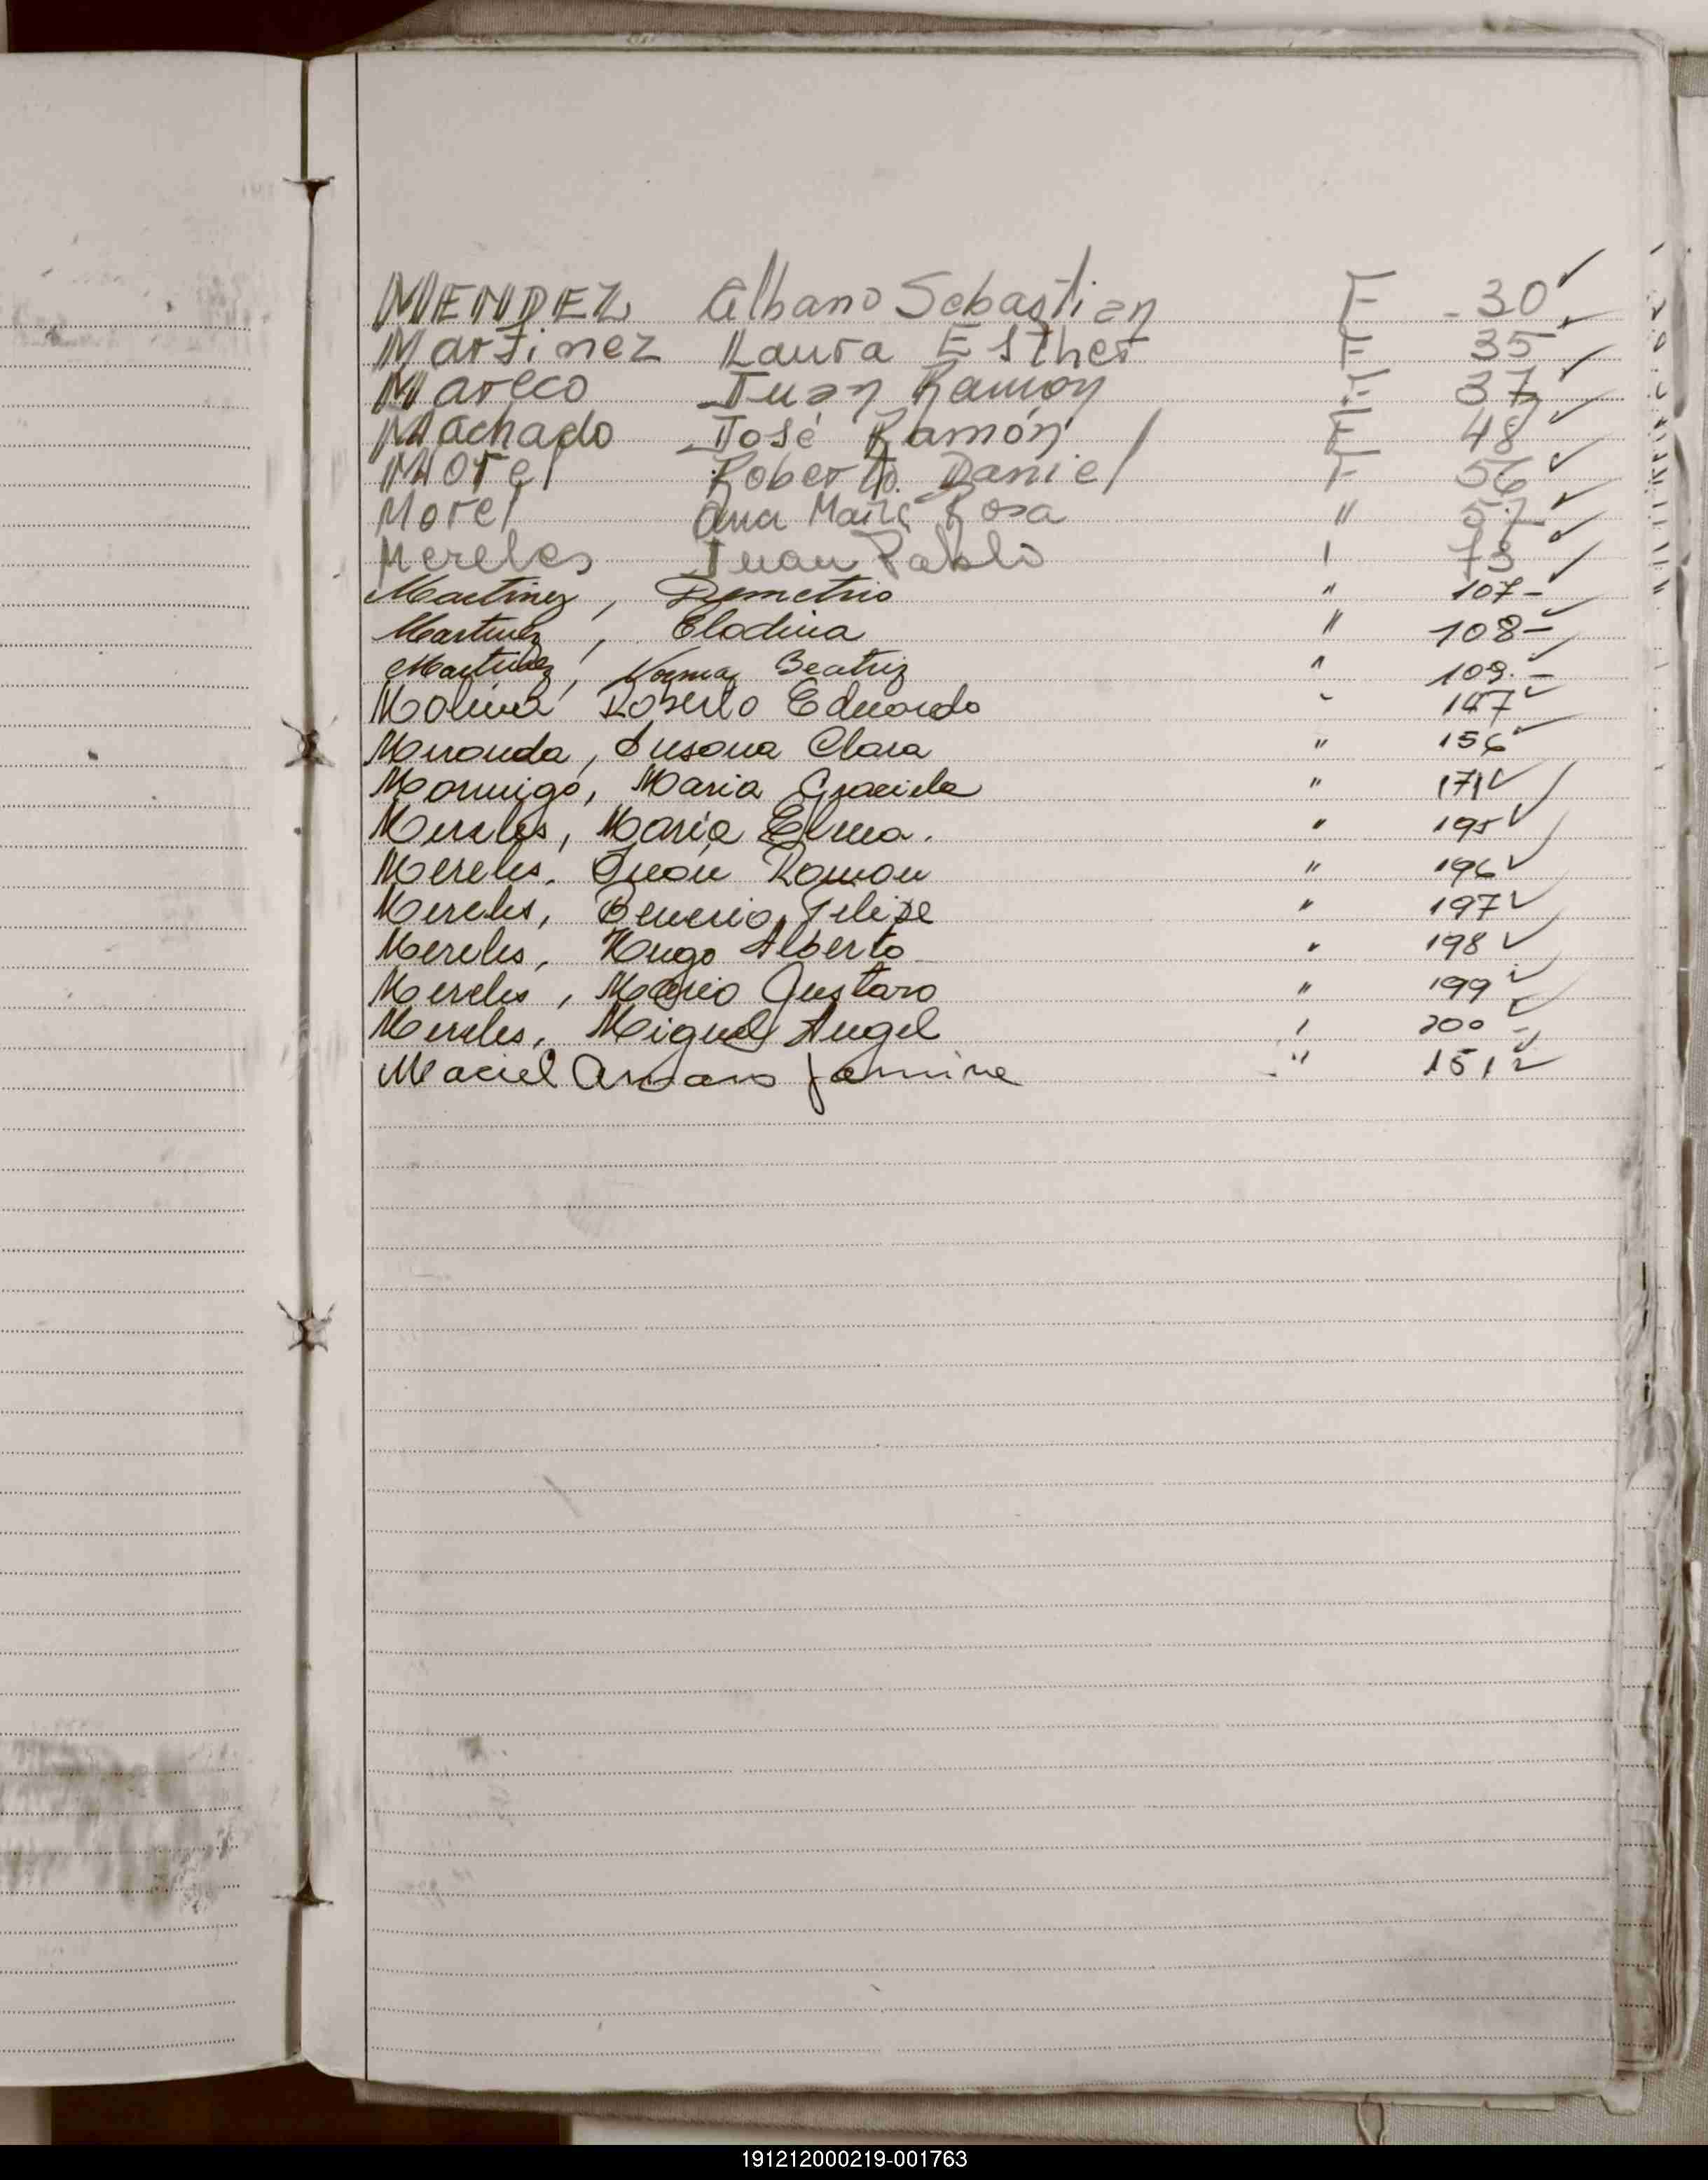 MENDEZ Albano Sebastian F 30
Martinez Laura Esther F 35
Mareco Juan Ramon F 37
Machado José Ramón F 48
Morel Roberto Daniel F 56
Morel Ana María Rosa " 57
Mereles Juan Pablo " 73
Martinez, Demetrio " 107-
Martinez, Elodina " 108-
Martinez, Norma Beatriz " 109.-
Molina Roberto Eduardo " 147
Miranda, Susana Clara " 156
Mormigo, Maria Graciela " 171
Mereles, María Elma. " 195
Mereles, Juan Ramon " 196
Mereles, Felipe " 197
Mereles, Hugo Alberto " 198
Mereles, Mario Gustavo " 199
Mereles, Miguel Angel " 200
Maciel " 151
191212000219-001763